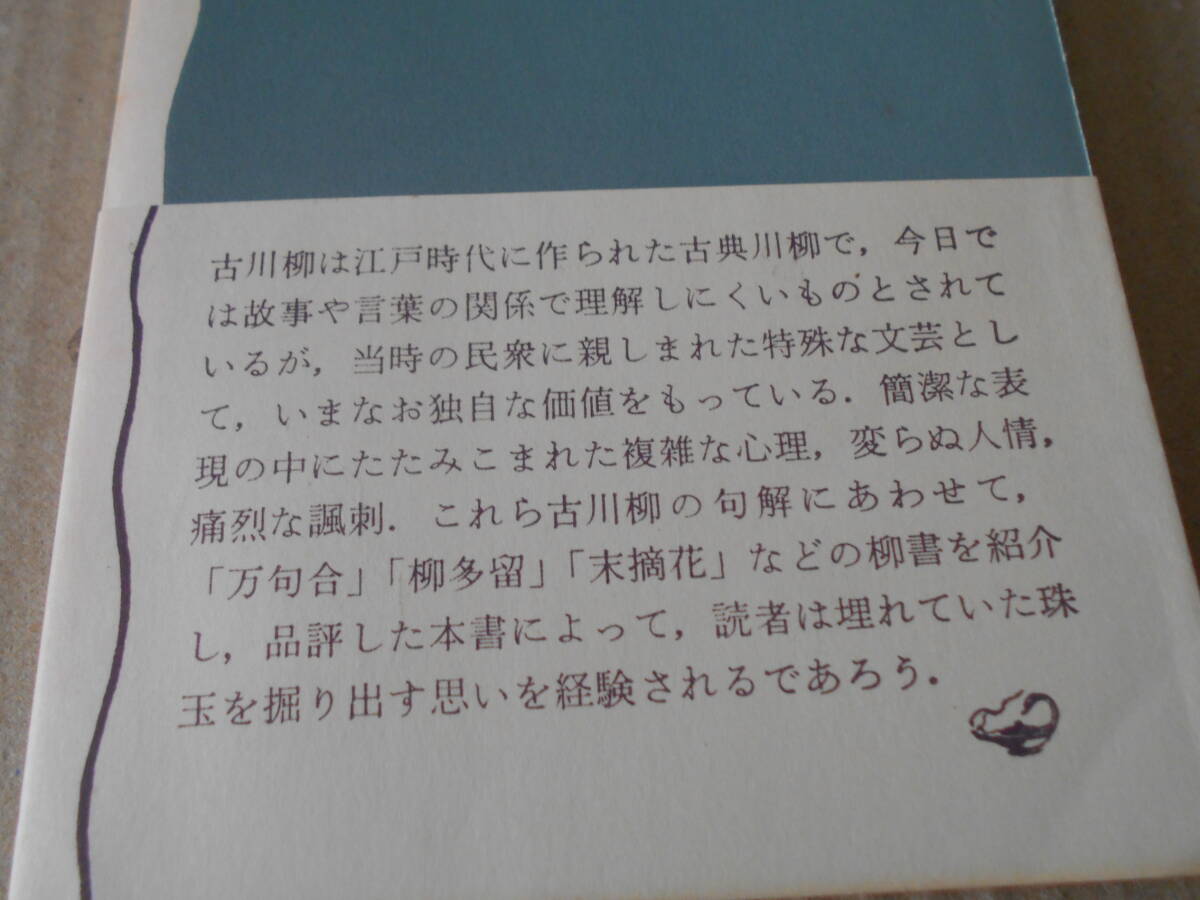 古川柳は江戸時代に作られた古典川柳で，今日で
は故事や言葉の関係で理解しにくいものとされて
いるが，当時の民衆に親しまれた特殊な文芸とし
て，いまなお独自な価値をもっている．簡潔な表
現の中にたたみこまれた複雑な心理，変らぬ人情，
痛烈な諷刺．これら古川柳の句解にあわせて，
「万句合」「柳多留」「末摘花」などの柳書を紹介
し，品評した本書によって，読者は埋れていた珠
玉を掘り出す思いを経験されるであろう．